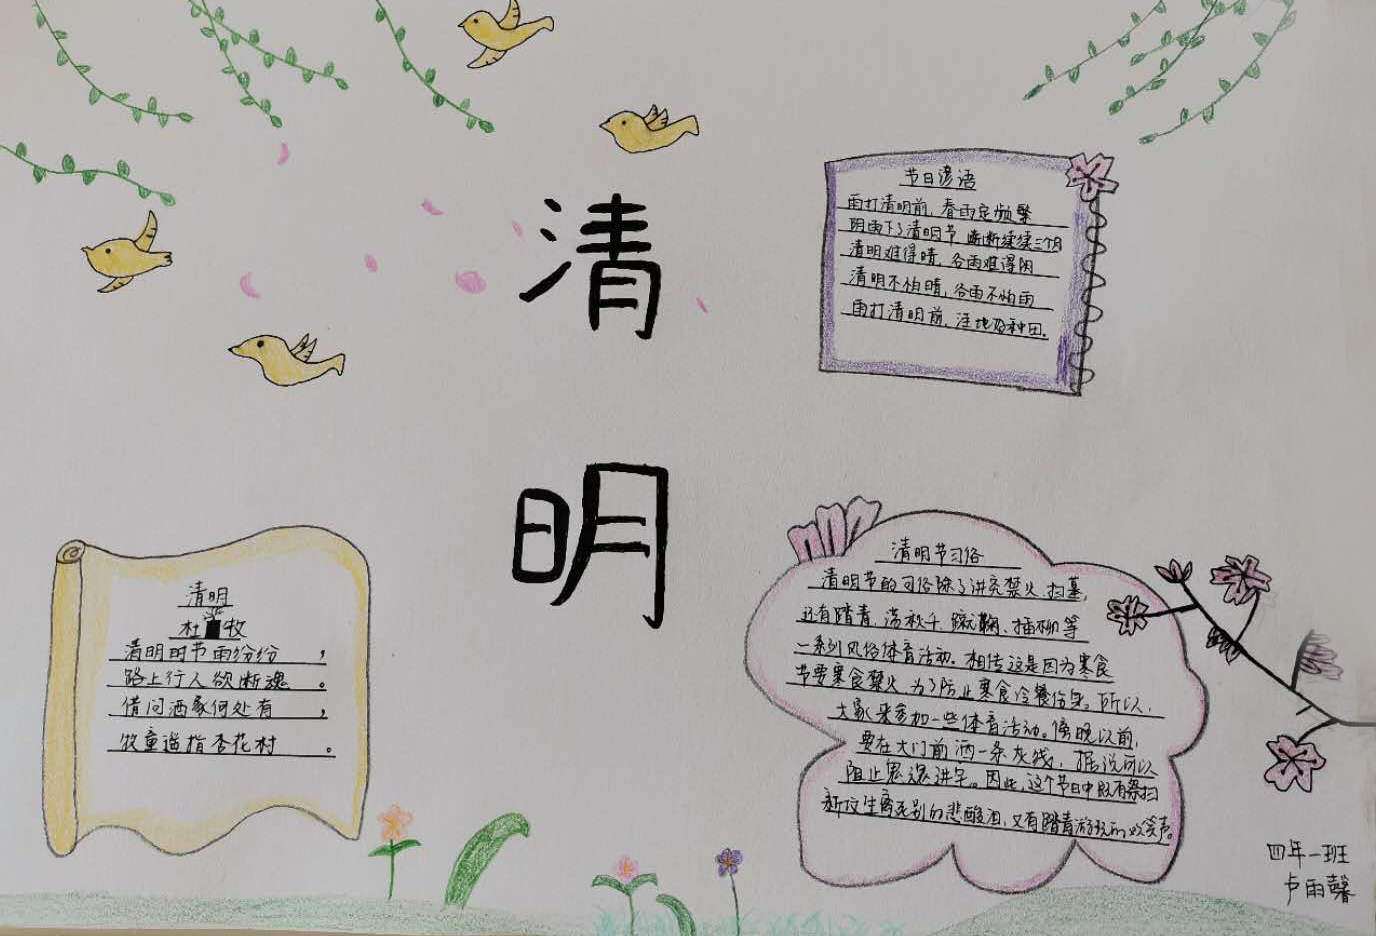 清
明
节日谚语
雨打清明前，春雨定频繁
阴雨下了清明节，断断续续三个月
清明难得晴，谷雨难得阴
清明不怕晴，谷雨不怕雨
雨打清明前，洼地好种田。
清明
杜牧
清明时节雨纷纷，
路上行人欲断魂。
借问酒家何处有，
牧童遥指杏花村。
清明节习俗
清明节的习俗除了讲究禁火、扫墓，
还有踏青、荡秋千、蹴鞠、插柳等
一系列风俗体育活动。相传这是因为寒食
节要寒食禁火，为了防止寒食冷餐伤身。所以，
大家来参加一些体育活动。傍晚以前，
要在大门前洒一条灰线，据说可以
阻止鬼魂进宅。因此，这个节日中既有祭扫
新坟生离死别的悲酸泪，又有踏青游玩的欢笑声。
四年一班
卢雨馨